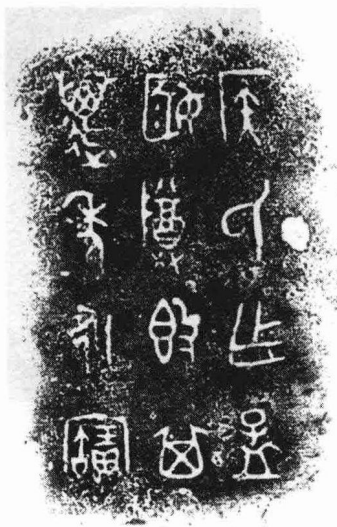 侯氏乍孟
姬尊簋其
萬年永寶